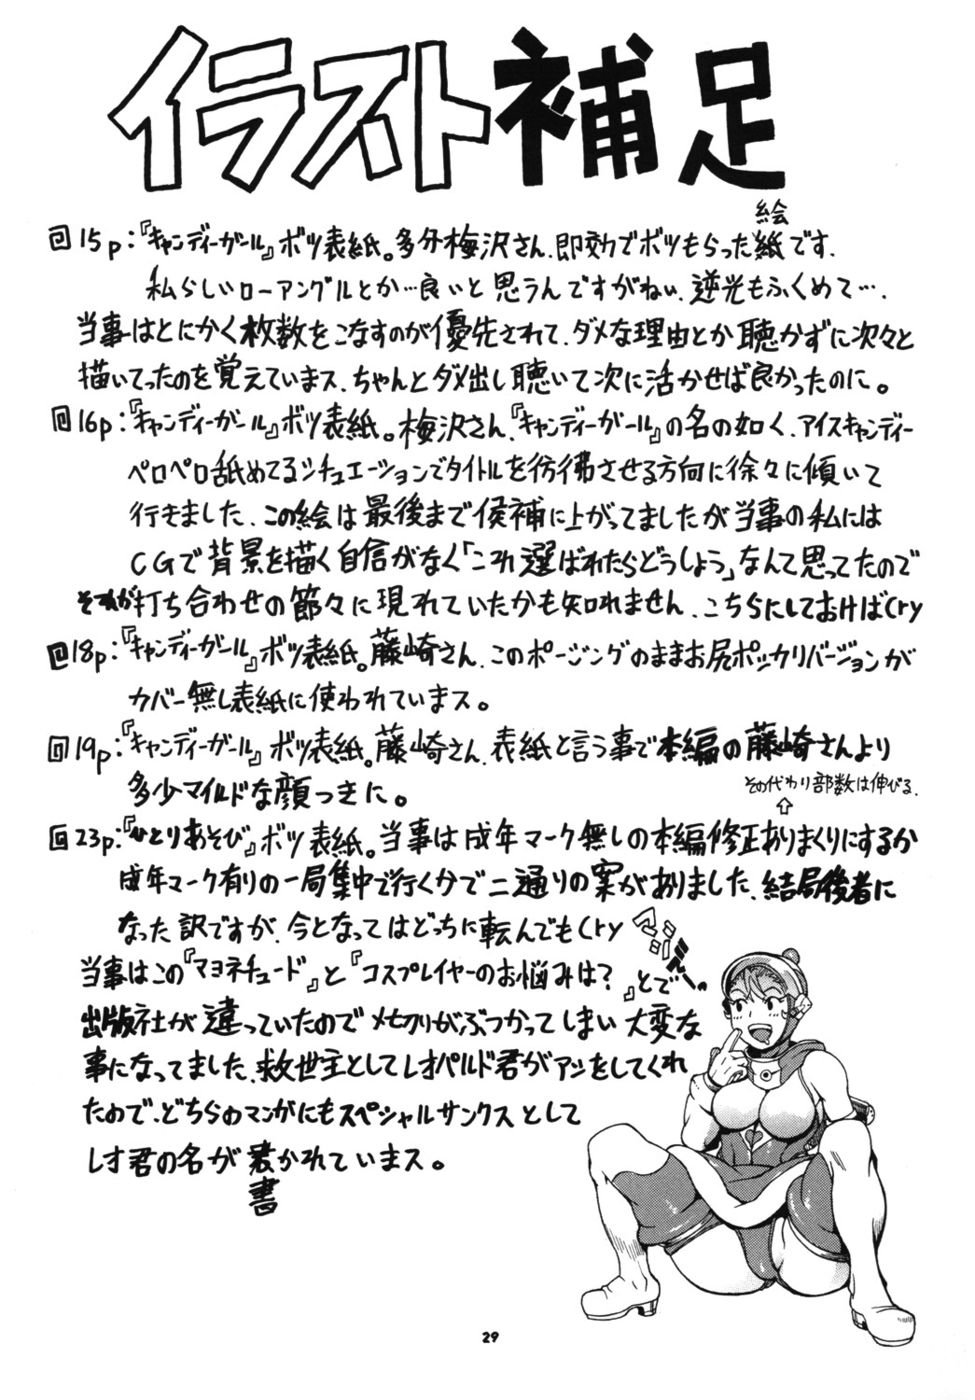 イラスト補足
回15p：『キャンディーガール』ボツ表紙。多分梅沢さん、即効でボツもらった紙です。
絵
私らしいローアングルとか…良いと思うんですがねぃ、逆光もふくめて…。
当事はとにかく枚数をこなすのが優先されて、ダメな理由とか聴かずに次々と
描いてったのを覚えていまス、ちゃんとダメ出し聴いて次に活かせば良かったのに。
回16p：『キャンディーガール』ボツ表紙。梅沢さん、『キャンディーガール』の名の如く、アイスキャンディー
ペロペロ舐めてるシチュエーションでタイトルを彷彿させる方向に徐々に傾いて
行きました、この絵は最後まで候補に上がってましたが当事の私には
CGで背景を描く自信がなく「これ選ばれたらどうしよう」なんて思ってたので
それが打ち合わせの節々に現れていたかも知れません、こちらにしておけばCry
回18p：『キャンディーガール』ボツ表紙。藤崎さん、このポージングのままお尻ポッカリバージョンが
カバー無し表紙に使われていまス。
回19p：『キャンディーガール』ボツ表紙。藤崎さん、表紙と言う事で本編の藤崎さんより
多少マイルドな顔つきに。
その代わり部数は伸びる。
⇧
回23p：『ひとりあそび』ボツ表紙。当事は成年マーク無しの本編修正ありまくりにするか
成年マーク有りの一局集中で行く分で二通りの案がありました、結局後者に
なった訳ですが、今となってはどっちに転んでもCry
マジデー
当事はこの『マヨネチュード』と『コスプレイヤーのお悩みは？』とで
出版社が違っていたのでメ切りがぶつかってしまい大変な
事になってました、救世主としてレオパルド君がアシをしてくれ
たので、どちらのマンガにもスペシャルサンクスとして
レオ君の名が書かれていまス。
書
29